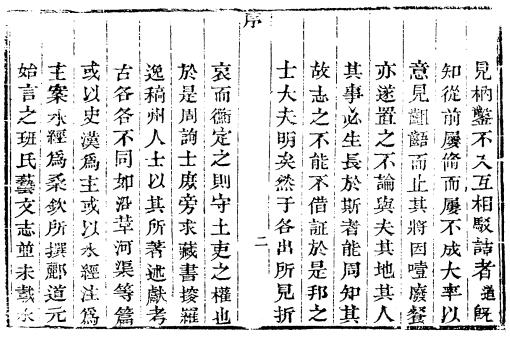 序
見枘鑿不入互相駁詰者道旣
知從前屢脩而屢不成大率以
意見齟齬而止其將因噎廢餐
亦遂置之不論與夫其地其人
其事必生長於斯者能周知其
故志之不能不借証於是邦之
士大夫明矣然于各出所見折
二
衷而衡定之則守土吏之權也
於是周詢士庶旁求藏書搜羅
逸稿州人士以其所著述獻考
古各各不同如沿革河渠等篇
或以史漢爲主或以水經注爲
主案水經爲桑欽所撰酈道元
始言之班氏藝文志並未載水